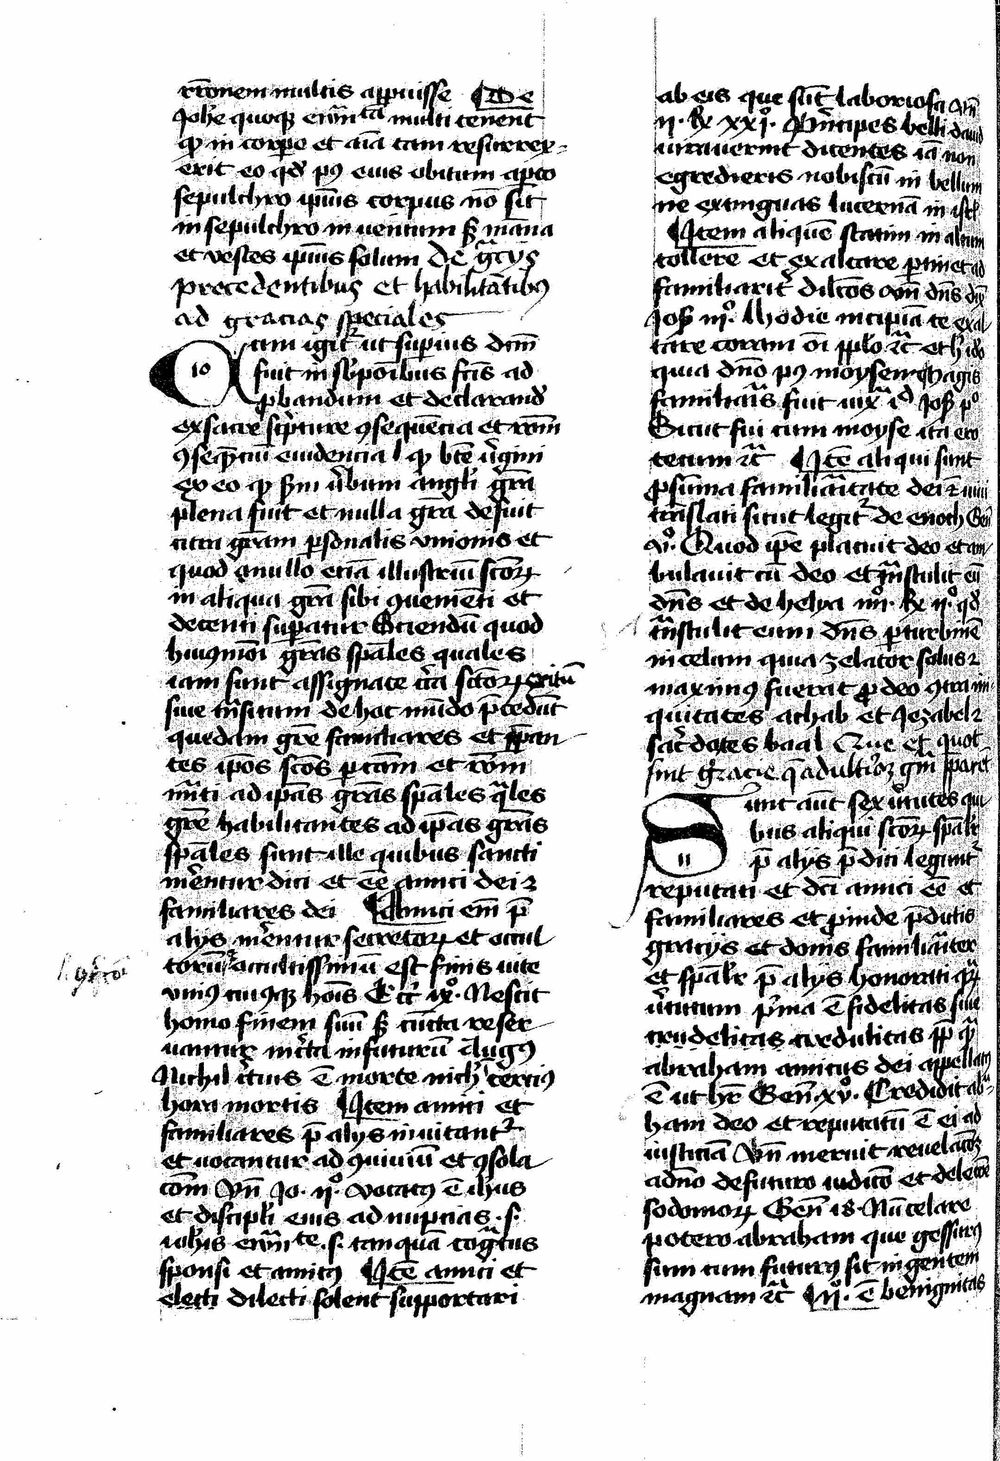 rronem multis apparuisse De
Johe quoqz ewãsta multi tenent
qp in corpore et aĩa iam resurrex-
erit eo qd post eius obitum aperto
sepulchro ipius corpus nõ sit
in sepulchro inuentum s manna
et vestes ipius solum De grãcijs
precedentibus et habilitãtibus
ad gracias speciales
10 am igit ut supius dcm
fuit in rñsponibus fcis ad
probandum et declarand
ex sacre scripture consequencia et rõnu
consequenciũ euidencia qp bte virgini
ex eo qp sm verbum angeli gra
plena fuit et nulla gra defuit
citra gram personalis vnionis et
quod a nullo eciã illustriũ scõrum
in aliqua gra sibi conuenienti et
decenti superatur Sciendũ quod
huiusmodi gras spales quales
iam sunt assignate circa scõrum exitũ
siue transitum de hoc mũdo precedũt
quedam gre familiares et prepan
tes ipos scos
ad ipas gras spales qles
gre habilitantes ad ipas gras
spales sunt ille quibus sancti
merentur dici et ee amici dei et
familiares dei Amici eni pre
alijs merentur secretorum et occul
torũ occultissimũ est finis uite
vnius cuiusqz hois Ecci ix°. Nescit
homo finem suũ s cuncta reser
uantur incerta in futurũ Augus
Nichil certius e morte nichil incertius
hora mortis Item amici et
familiares pre alijs inuitantur
et vocantur ad conuiuiũ et consola
cõem Vñ Jo. ii° vocatus e ihus
et discipuli eius ad nupcias .s.
iohis ewãste .s. tanquã cognatus
sponsi et amicus Ite amici et
electi dilecti solent supportari
ab eis que sũt laboriosa Vñ
ii. Rx xxi°. Principes belli dauid
iurauerunt dicentes iã non
egredieris nobiscũ in bellum
ne extinguas lucernã in isrl
Item aliquẽ statim in altum
tollere et exaltare pertinet ad
familiarit dilcõs vñ dns dix
Jos iii°. Hodie incipiã te exal
tare coram oi pplo rc et h ido
quia dño post moysen magis
familiaris fuit iux id Jos p°
Sicut fui cum moyse ita ero
tecum rc Ite aliqui sunt
pro summa familiaritate dei
translati sicut legitur de enoch Gen
v°. Quod ipe placuit deo et am
bulauit cũ deo et transtulit eũ
dñs et de helya iiii. Rx ii° qd
transtulit eum dñs per turbinẽ
in celum quia zelator solus et
maximus fuerat pro deo contra ini
quitates achab et Jezabel et
sacerdotes baal Que et quot
sint gracie
11 unt aut sex virtutes qui
bus aliqui scõrum spalir
pre alijs predici legunt
reputati et dci amici ee et
familiares et proinde predictis
gracijs et donis familiariter
et spalir pre alijs honorati quarum
virtutum prima e fidelitas siue
crudelitas credulitas propter quam
abraham amicus dei appellatus
e ut hr Gen xv°. Credidit abra
ham deo et reputatũ e ei ad
iusticiã Vñ meruit reuelacõem
a dño de futuro iudicio et delecõe
sodomorum Gen 18. Nũ celare
potero abraham que gessurus
sum cum futurus sit in gentem
magnam rc ii°. e benignitas